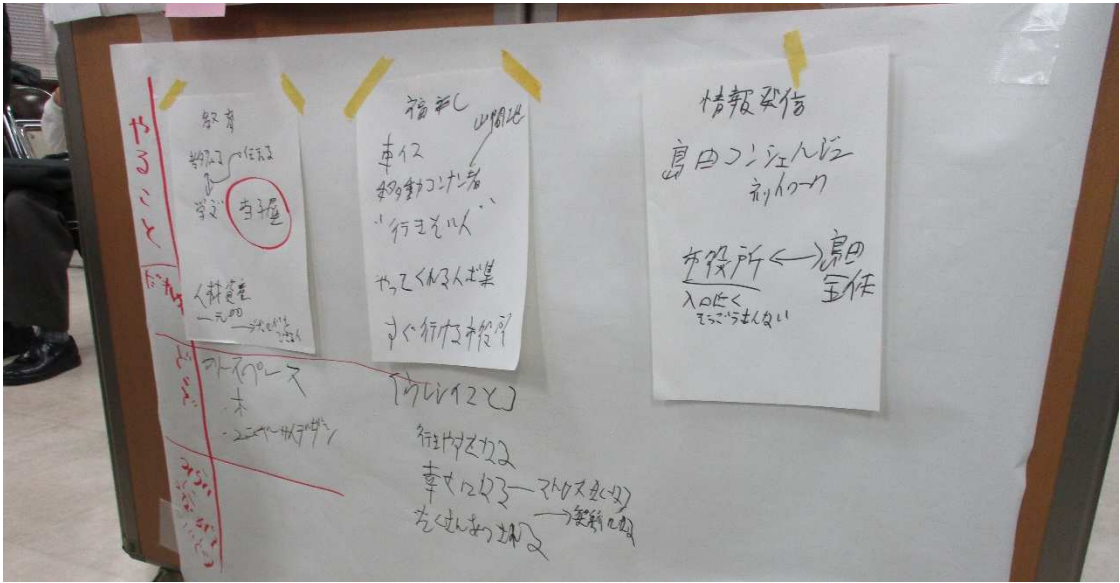 やること
だれが
どこで
教育
教える 伝える
学ぶ 寺子屋
人材資産
一元的
フリースペース
・木
・ユニバーサルデザイン
福祉
山間地
車イス
移動コンナン者
"行きたい人"
やってくれる人が集
すぐ行ける市役所
[ウレシイコト]
行きやすくなる
幸せになる
たくさんあつまれる
情報発信
島田コンシェルジュ
ネットワーク
市役所 ←→ 島田
全体
入口近く